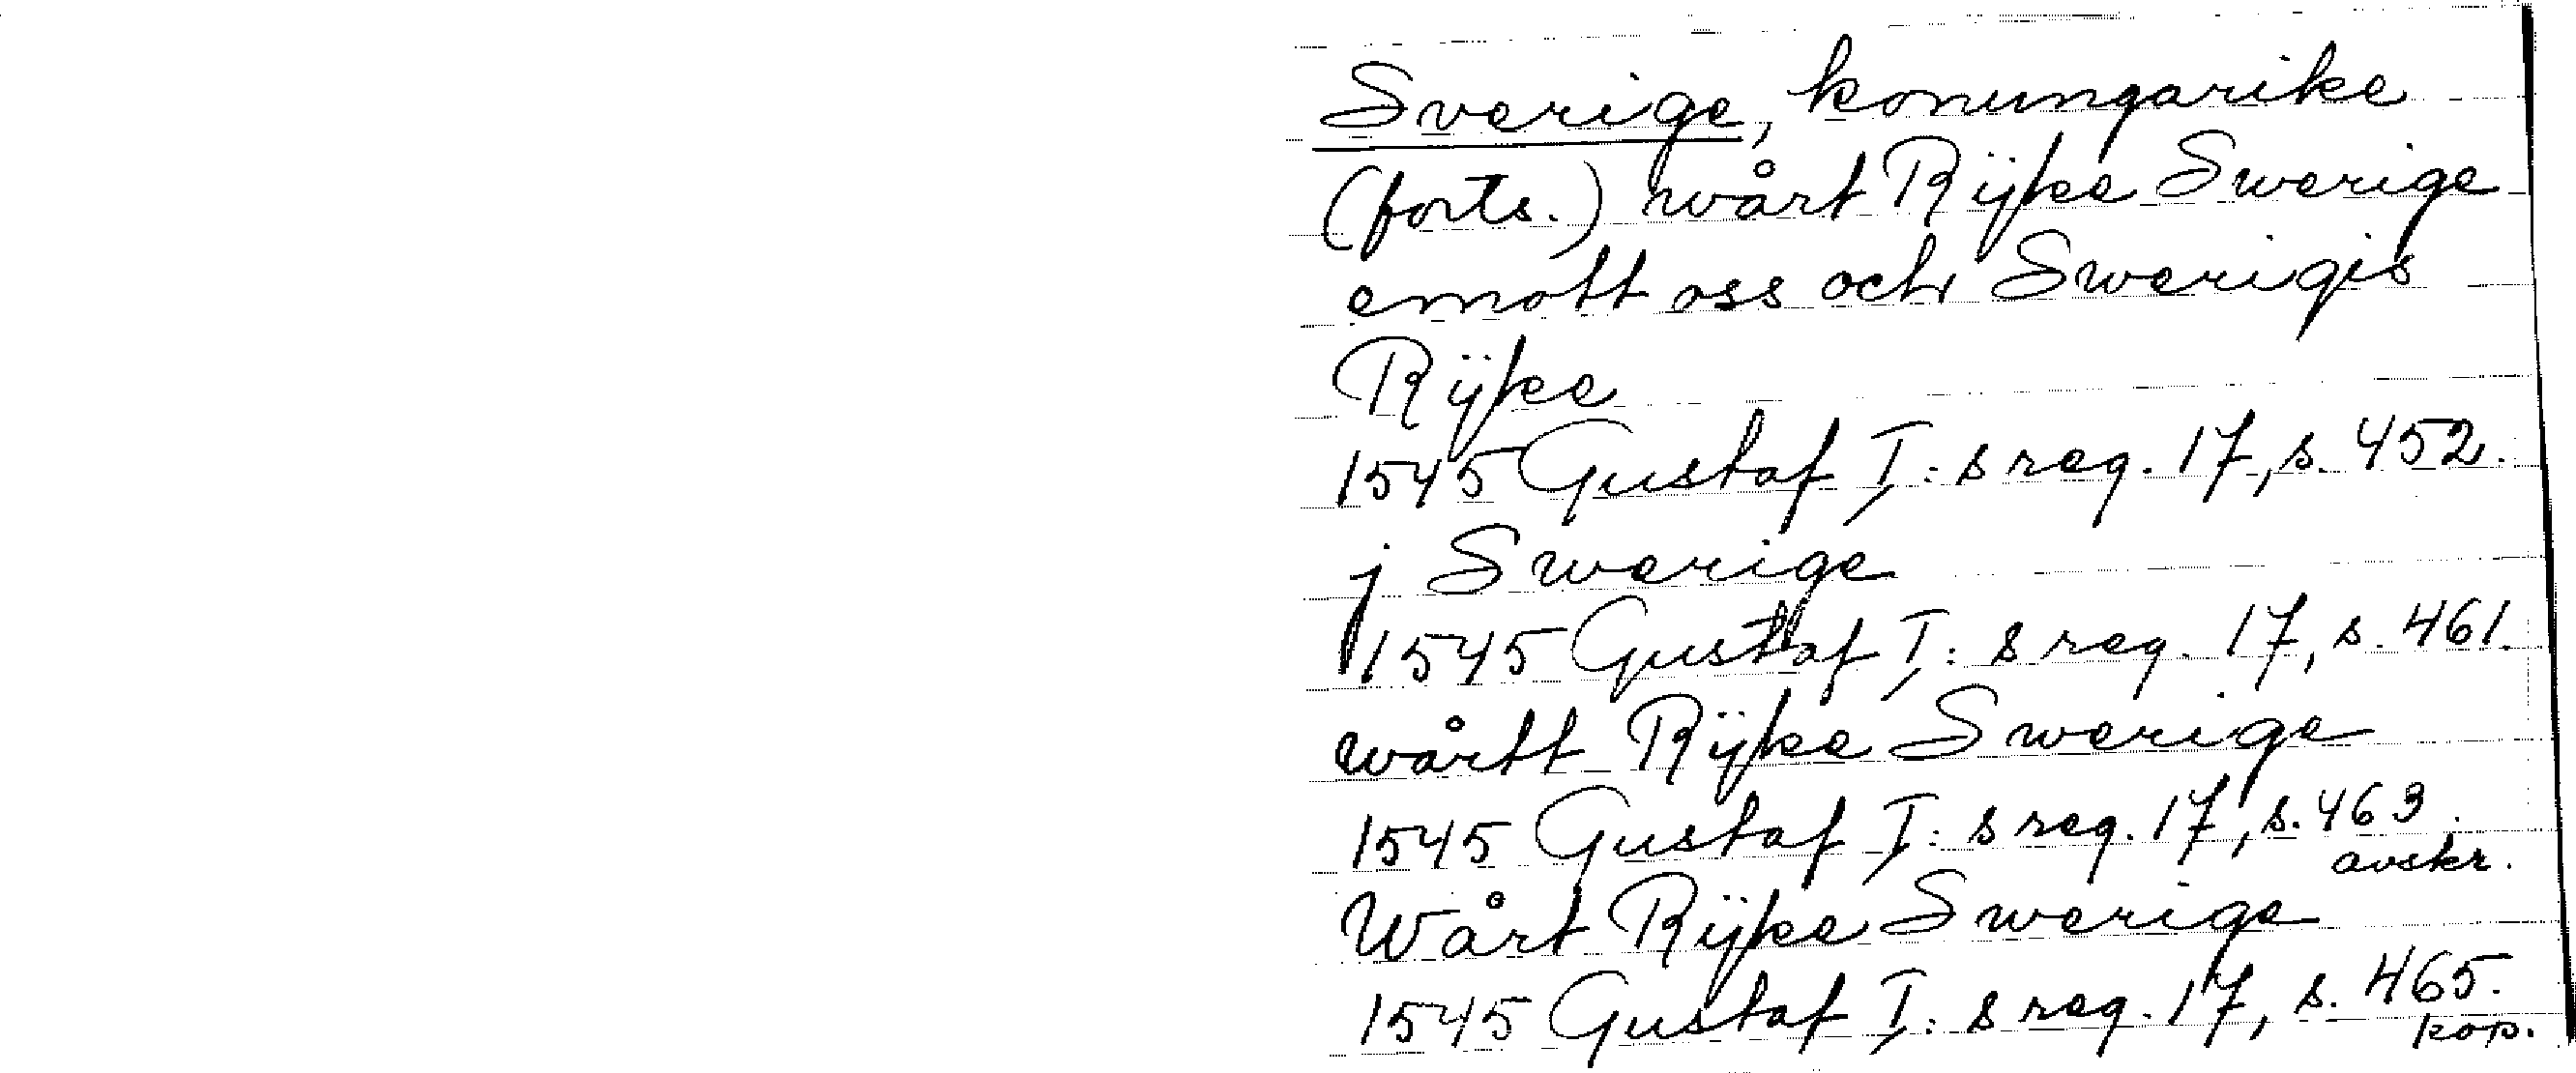 Sverige, konungarike
(forts.) wårt Rÿke Swerige
emott oss och Swerigis
Rÿke
1545 Gustaf I:s reg. 17, s. 452.
j Swerige
1545 Gustaf I:s reg. 17, s. 461.
wårtt Rÿke Swerige
1545 Gustaf I:s reg. 17, s. 463.
avskr.
Wårt Rÿke Swerige
1545 Gustaf I:s reg. 17, s. 465.
kop.